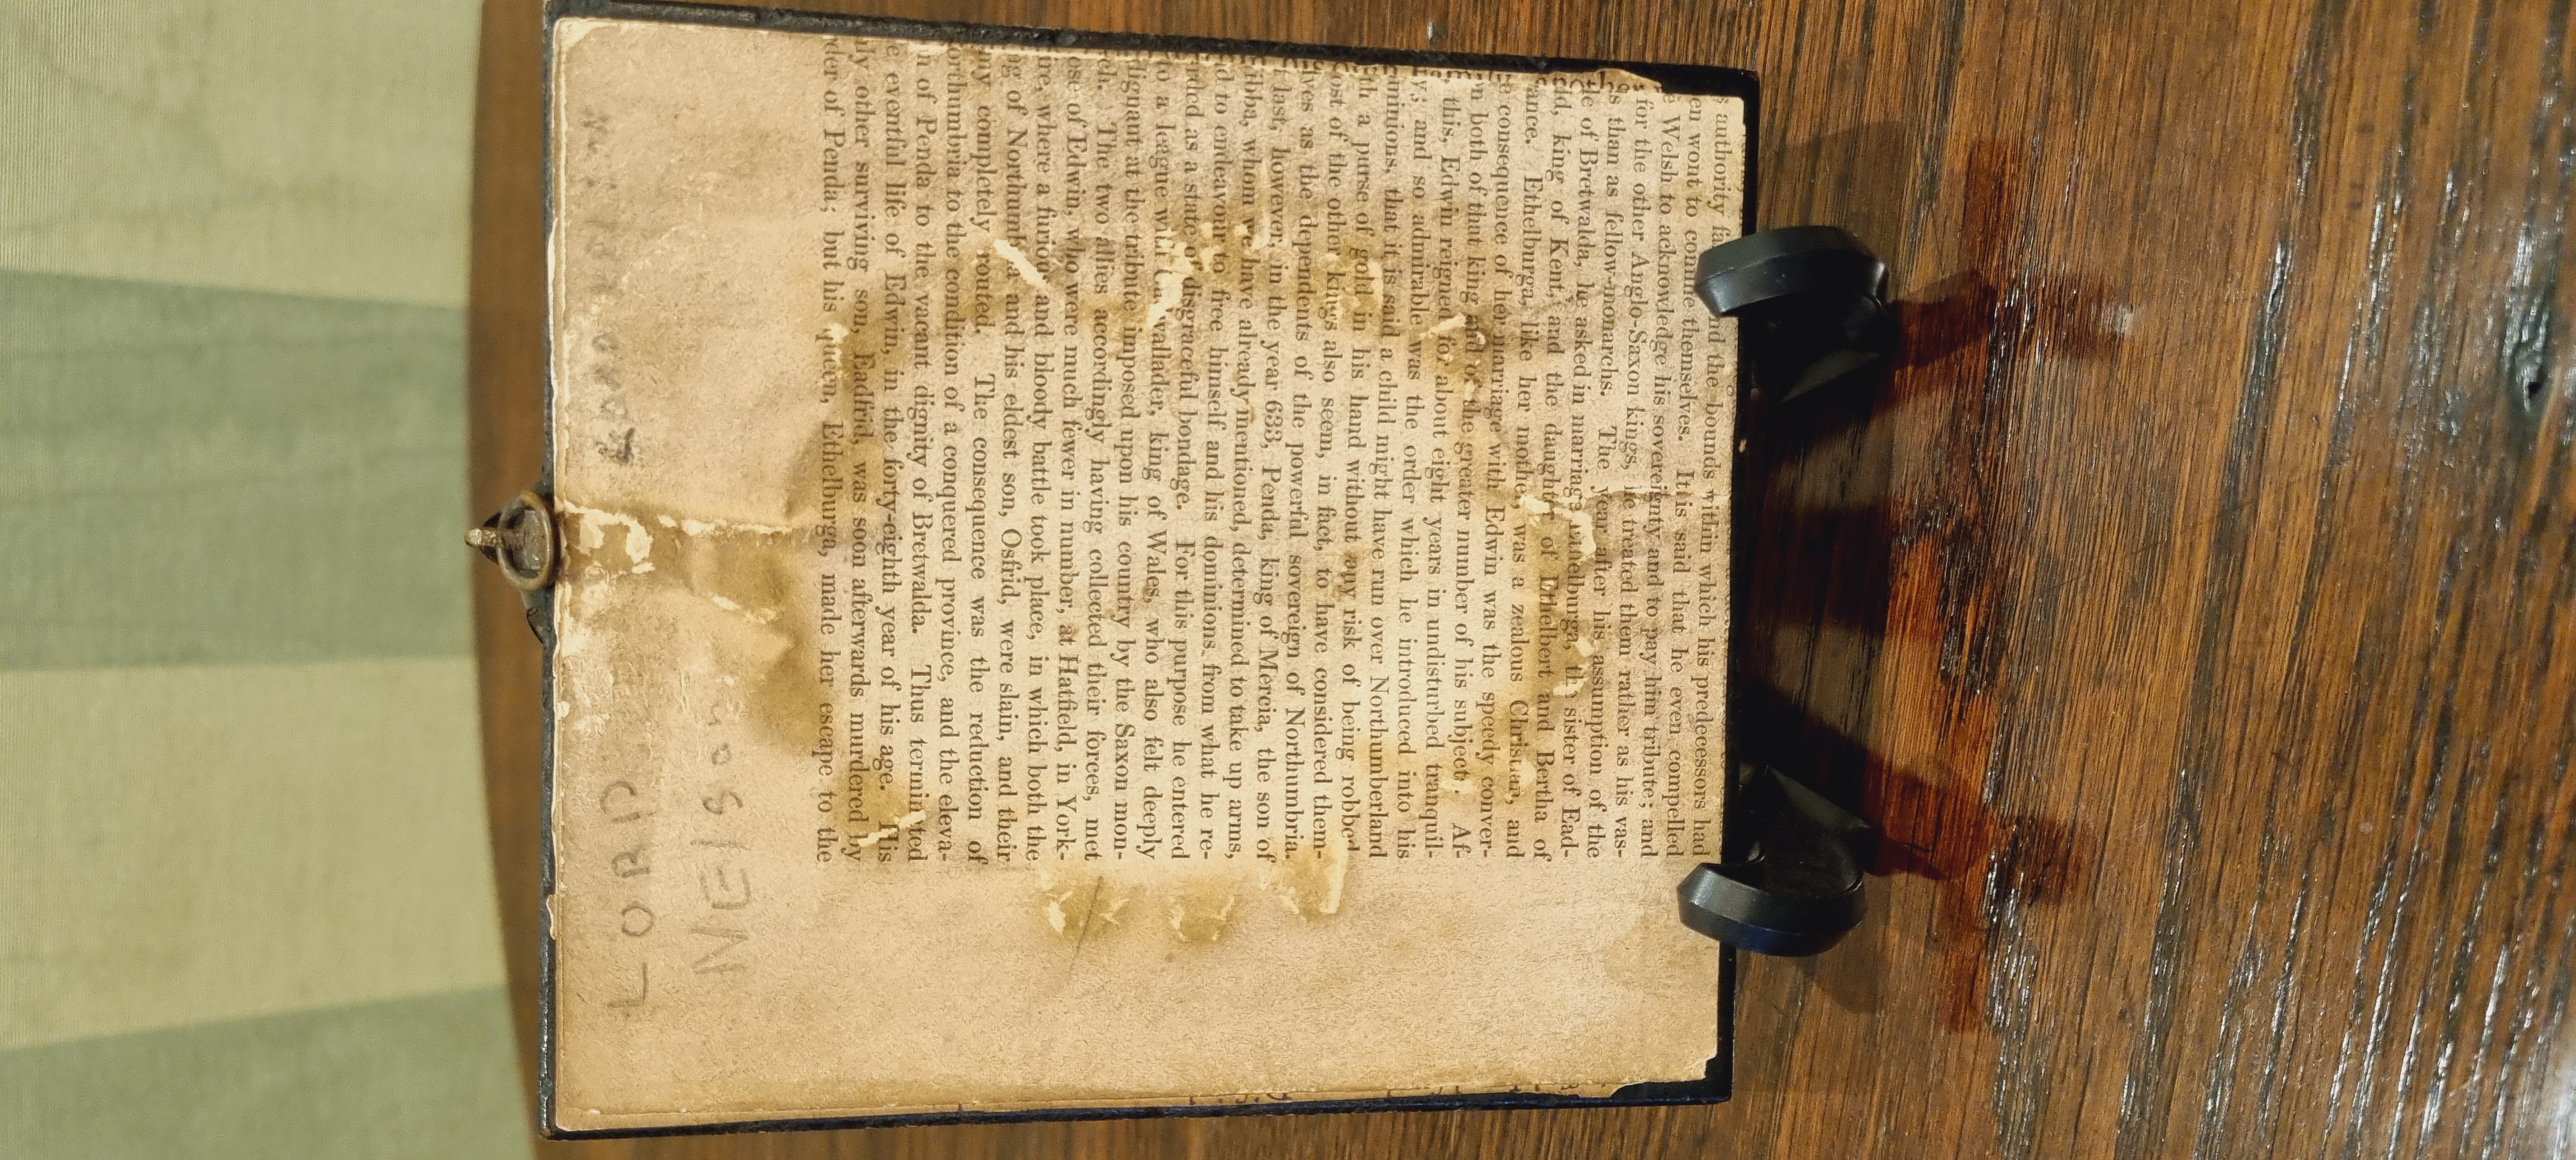 LORD
Nelson
LORD NELSON
authority and the bounds within which his predecessors had
en wont to confine themselves. It is said that he even compelled
e Welsh to acknowledge his sovereignty and to pay him tribute; and
for the other Anglo-Saxon kings, he treated them rather as his vas-
ls than as fellow-monarchs. The year after his assumption of the
le of Bretwalda, he asked in marriage Ethelburga, the sister of Ead-
ld, king of Kent, and the daughter of Ethelbert and Bertha of
ance. Ethelburga, like her mother, was a zealous Christian, and
e consequence of her marriage with Edwin was the speedy conver-
n both of that king and of the greater number of his subjects. Af-
this, Edwin reigned for about eight years in undisturbed tranquil-
y; and so admirable was the order which he introduced into his
minions, that it is said a child might have run over Northumberland
th a purse of gold in his hand without any risk of being robbed
ost of the other kings also seem, in fact, to have considered them-
lves as the dependents of the powerful sovereign of Northumbria.
last, however, in the year 633, Penda, king of Mercia, the son of
ibba, whom we have already mentioned, determined to take up arms,
d to endeavour to free himself and his dominions from what he re-
rded as a state of disgraceful bondage. For this purpose he entered
to a league with Cadwallader, king of Wales, who also felt deeply
dignant at the tribute imposed upon his country by the Saxon mon-
ch. The two allies accordingly having collected their forces, met
ose of Edwin, who were much fewer in number, at Hatfield, in York-
ire, where a furious and bloody battle took place, in which both the
g of Northumbria and his eldest son, Osfrid, were slain, and their
my completely routed. The consequence was the reduction of
orthumbria to the condition of a conquered province, and the eleva-
n of Penda to the vacant dignity of Bretwalda. Thus terminated
e eventful life of Edwin, in the forty-eighth year of his age. His
ly other surviving son, Eadfrid, was soon afterwards murdered by
der of Penda; but his queen, Ethelburga, made her escape to the